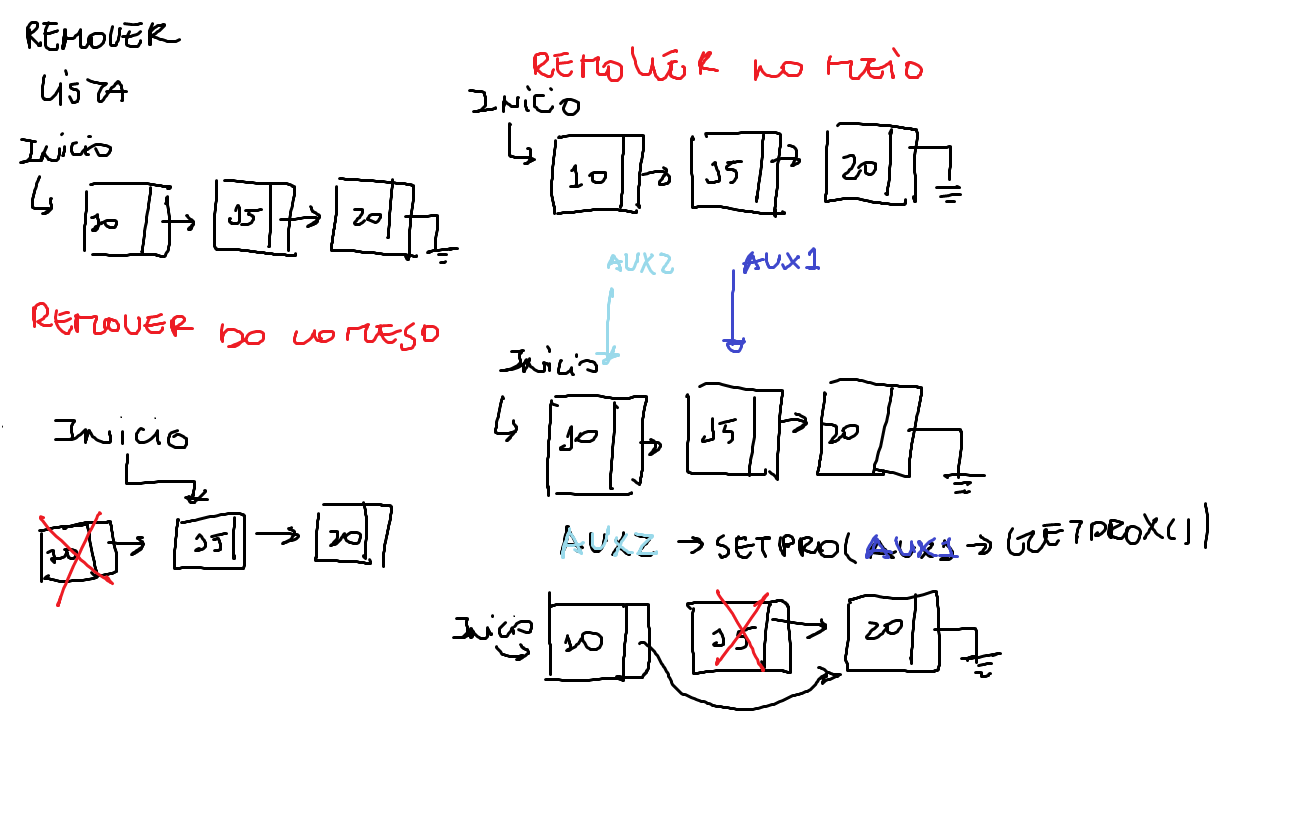 REMOVER
LISTA
INICIO
10 15 20
REMOVER DO COMESO
INICIO
10 15 20
REMOVER NO MEIO
INICIO
10 15 20
AUX2 AUX1
INICIO
10 15 20
AUX2 → SETPRO(AUX1 → GETPROX())
INICIO
10 15 20